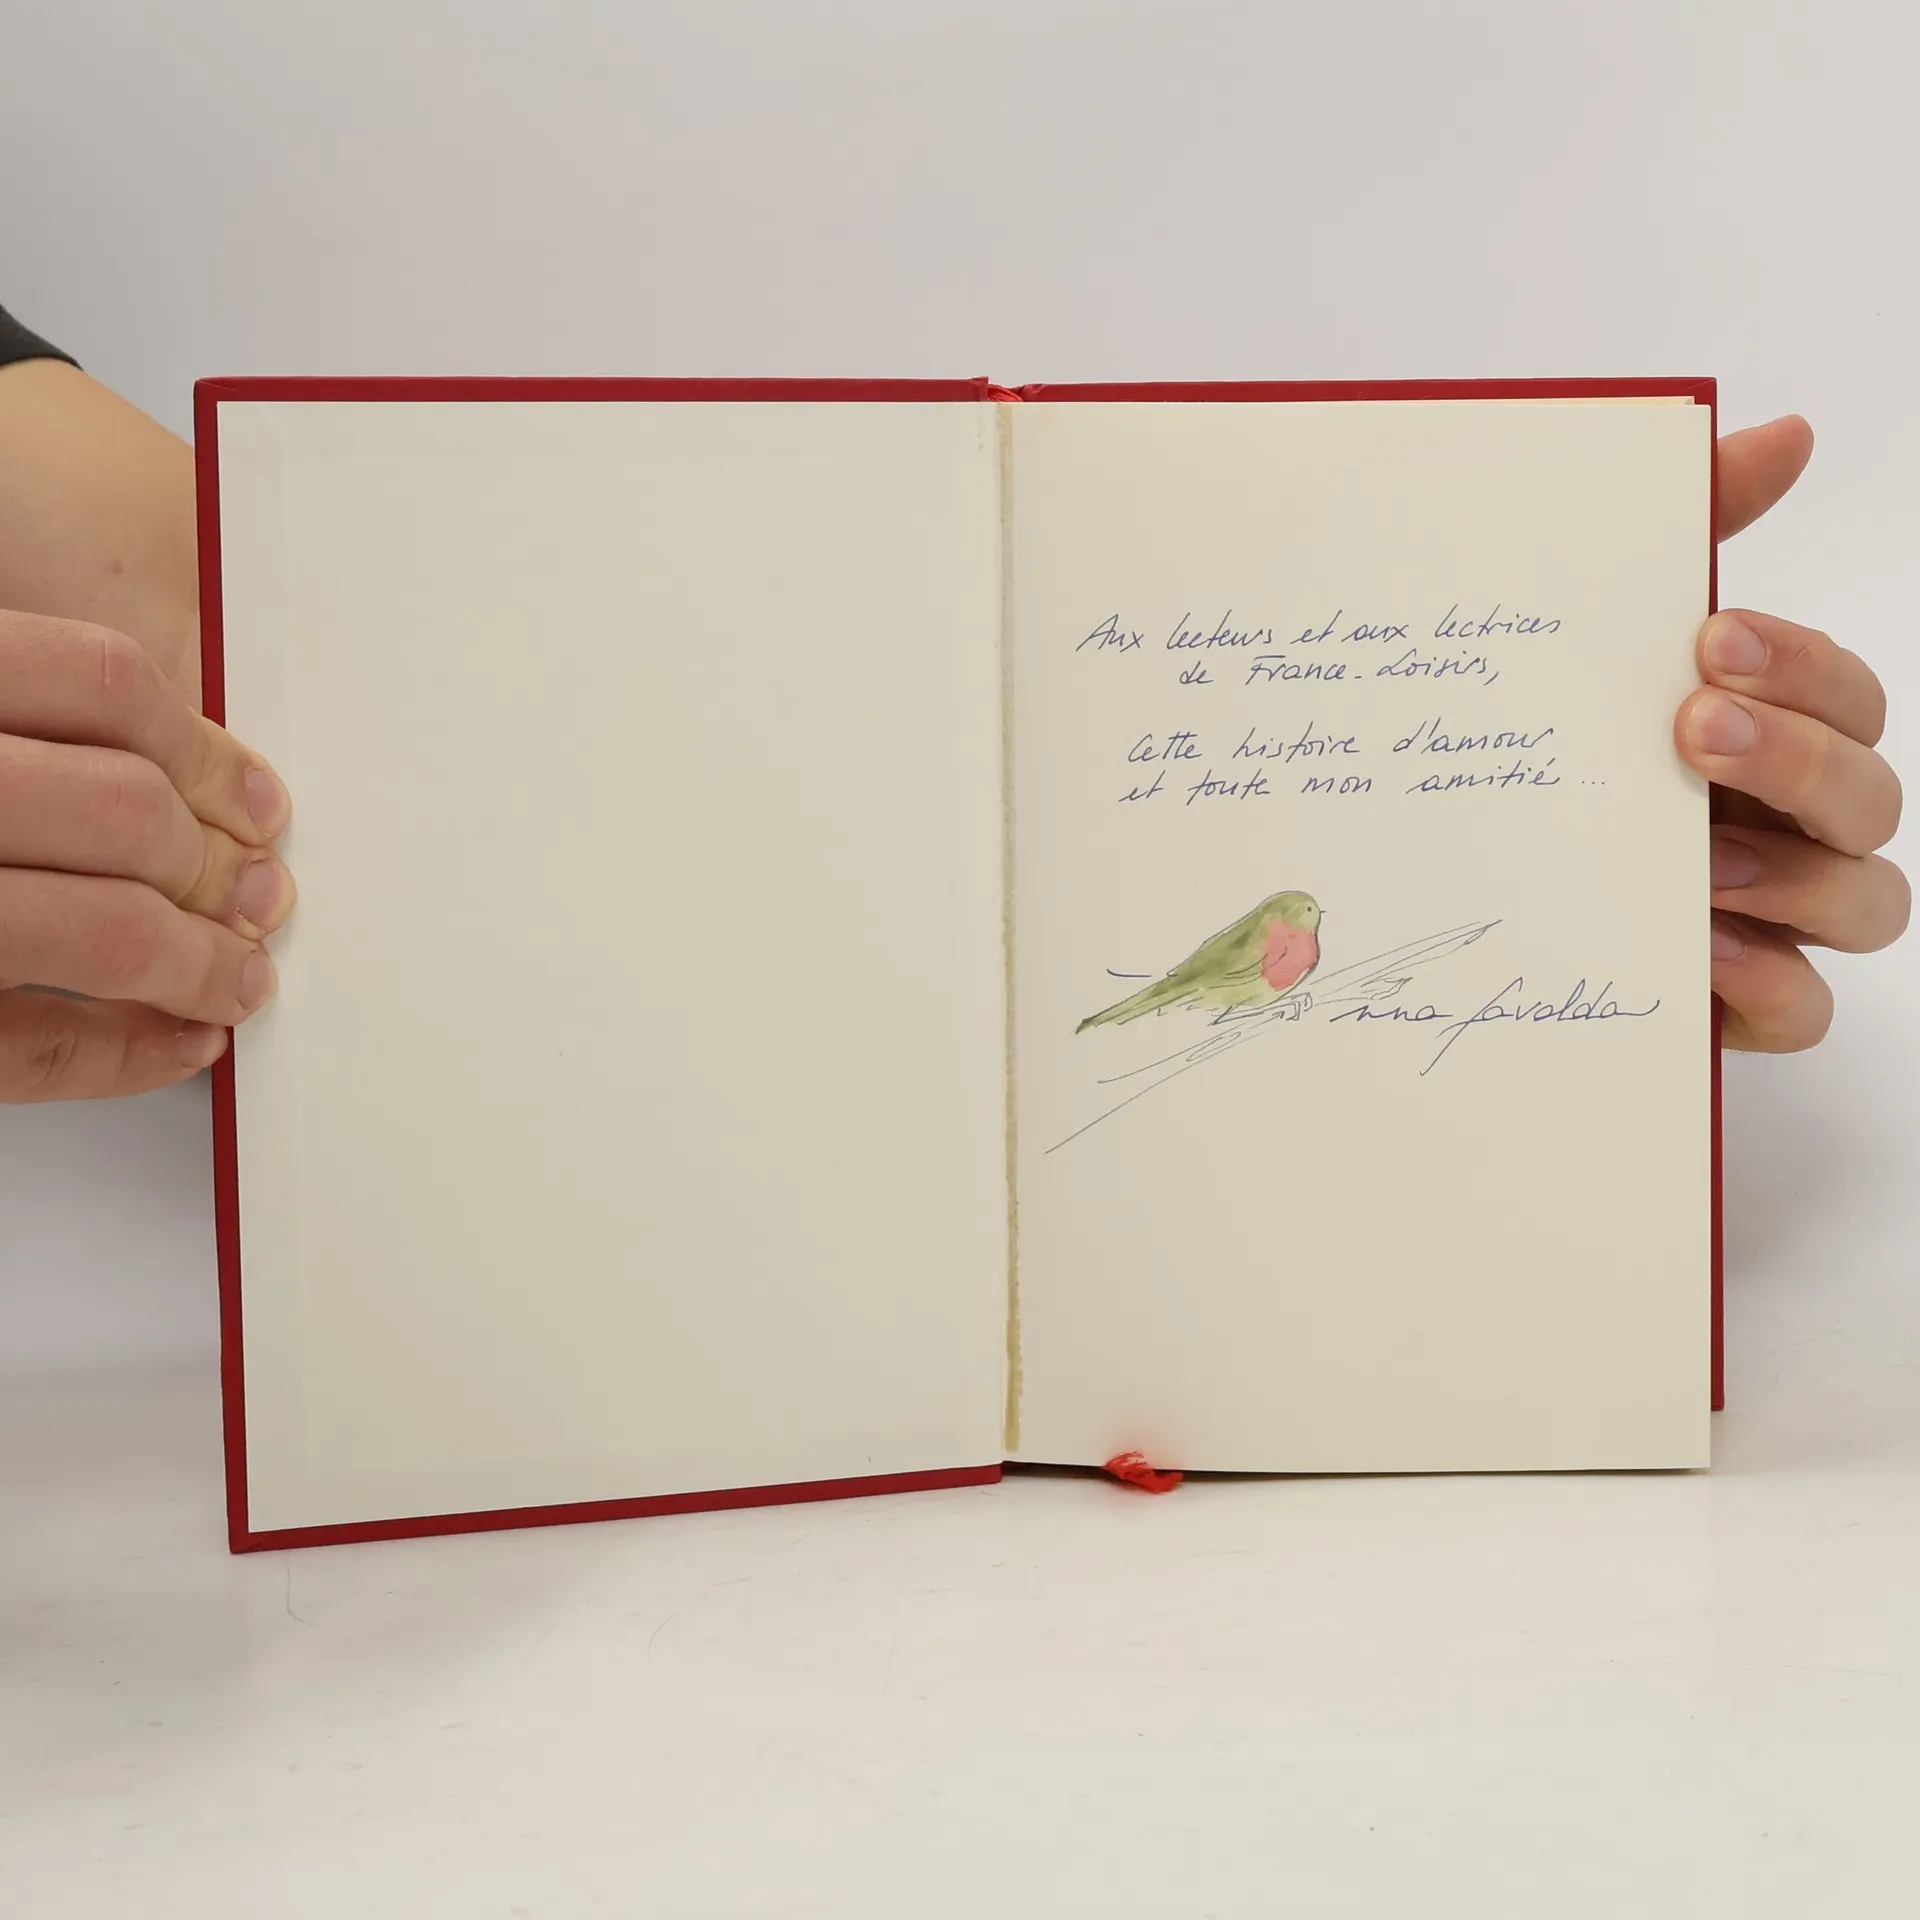 Aux lecteurs et aux lectrices
de France-Loisirs,
Cette histoire d'amour
et toute mon amitié ...
anna gavalda